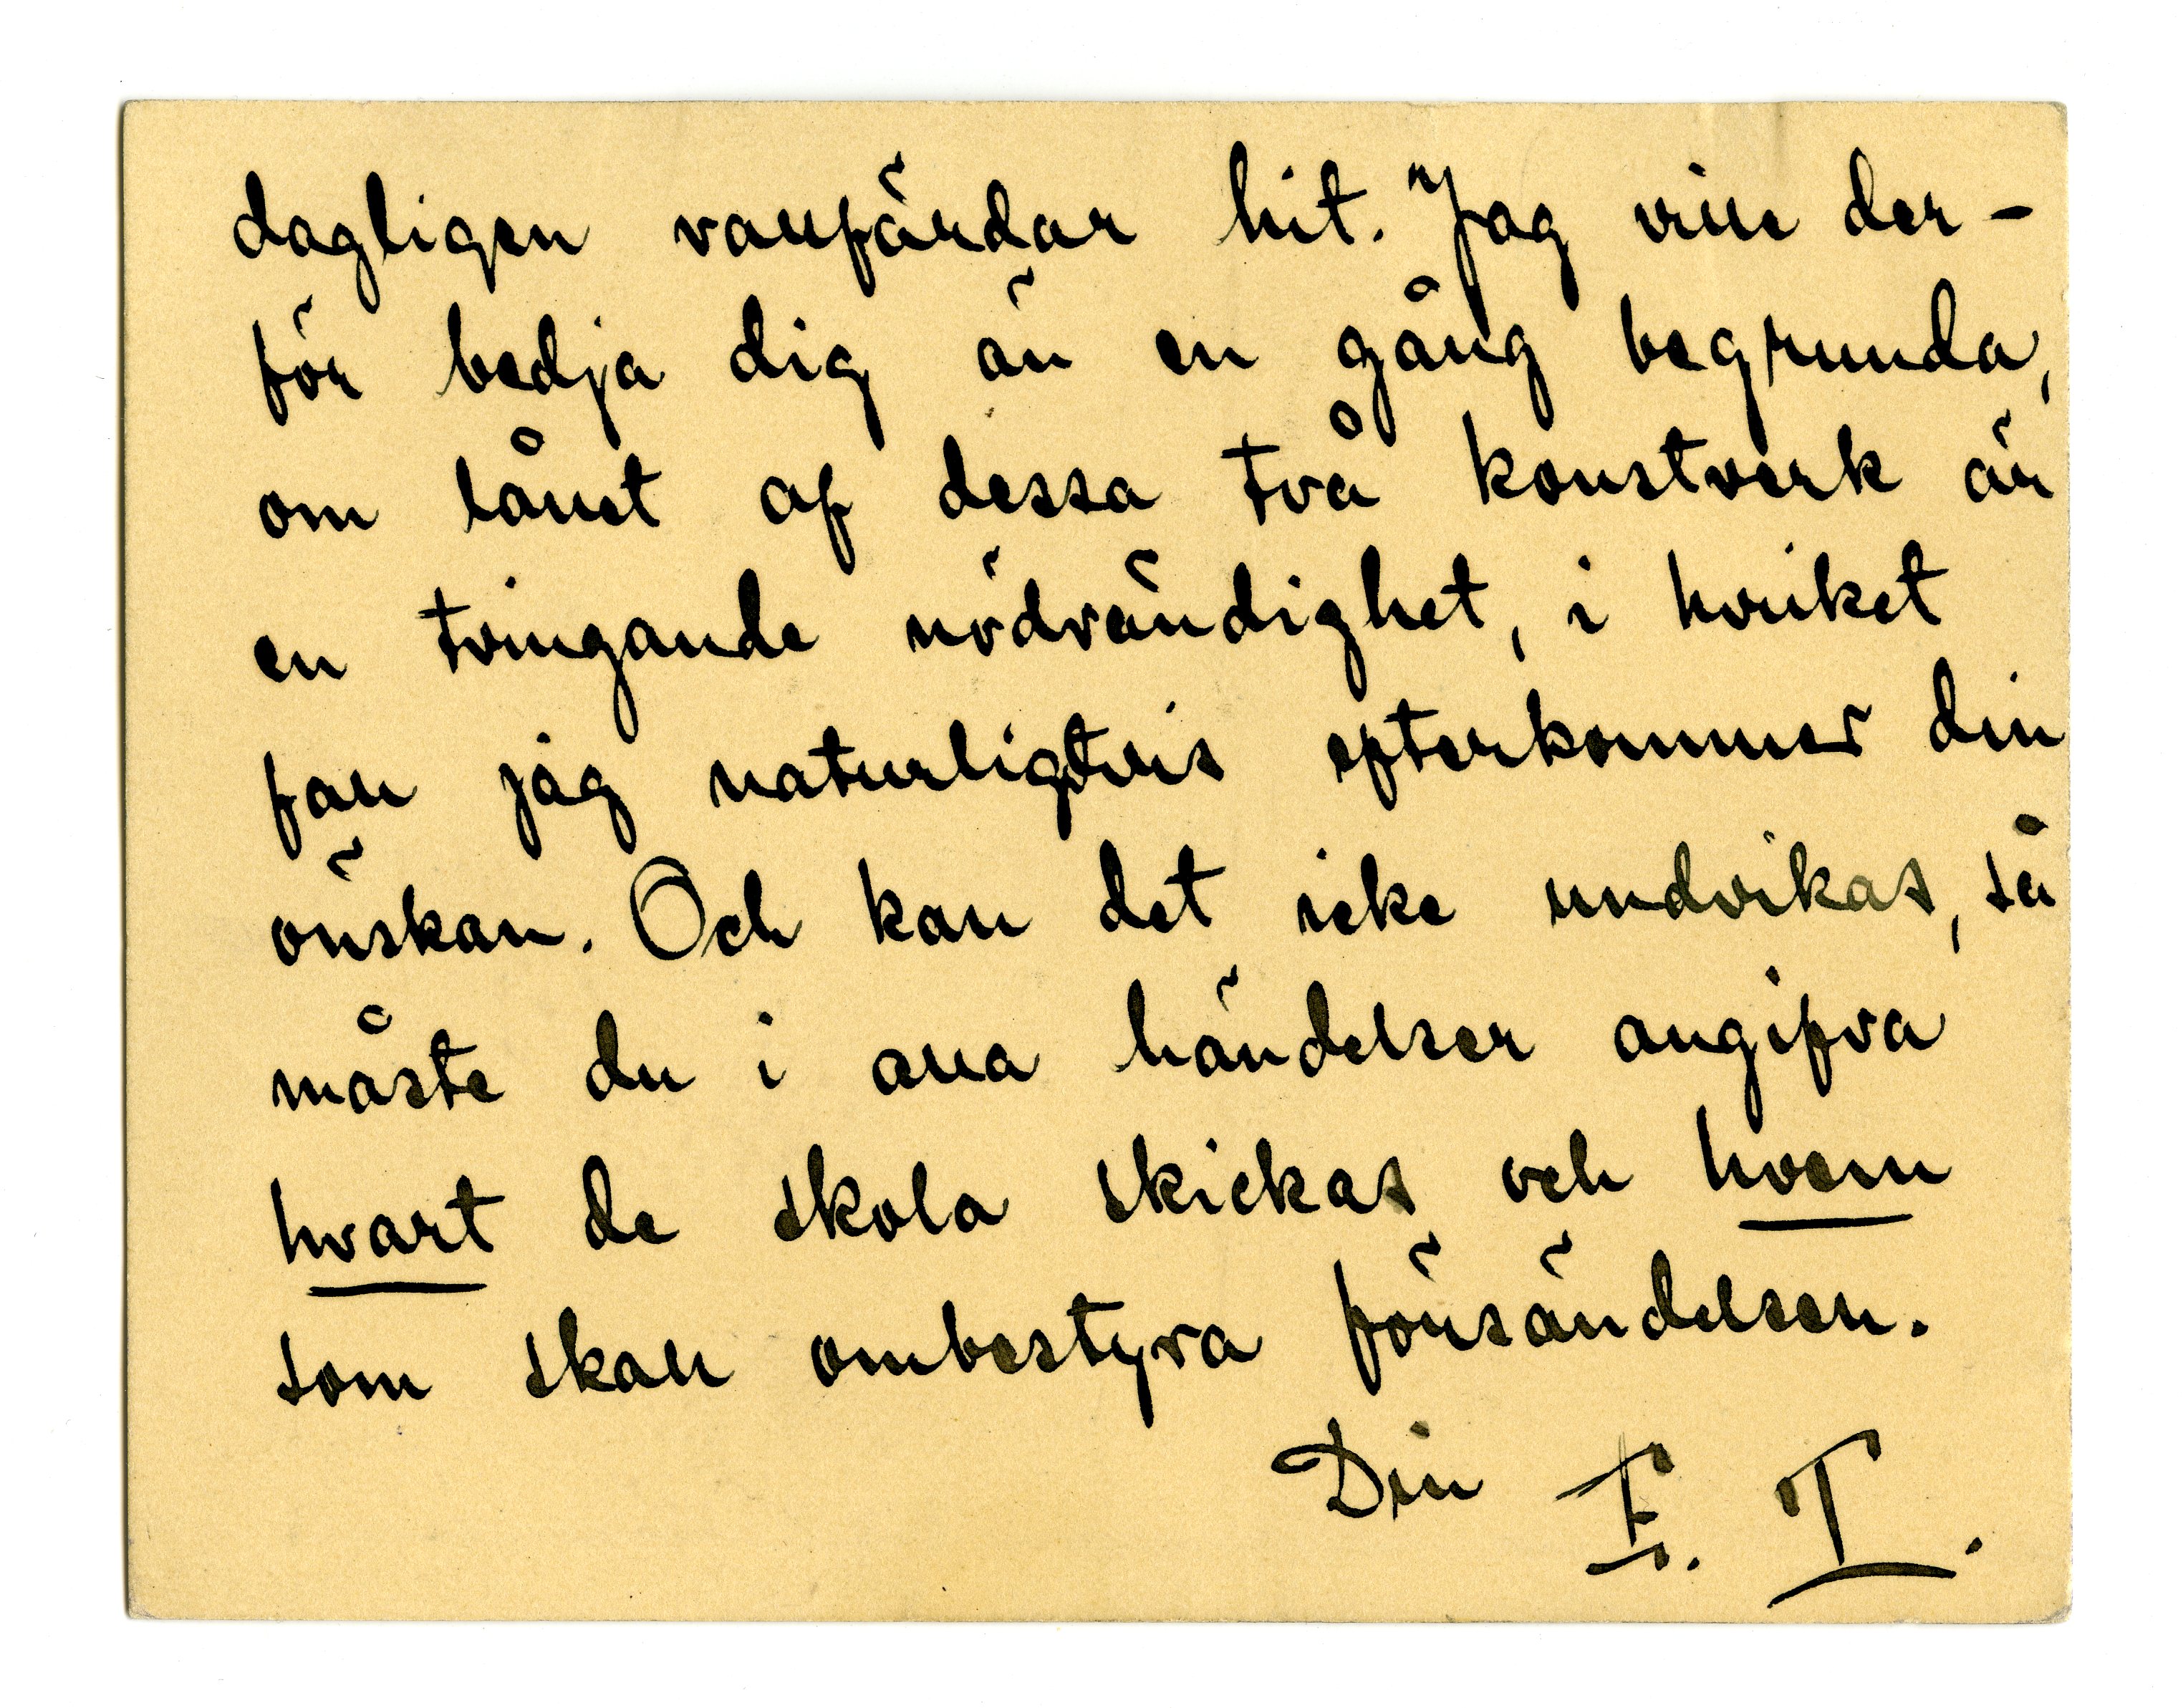 dagligen vallfärdar hit. Jag vill der-
för bedja dig än en gång begrunda,
om lånet af dessa två konstverk är
en tvingande nödvändighet, i hvilket
fall jag naturligtvis efterkommer din
önskan. Och kan det icke undvikas, så
måste du i alla händelser angifva
hvart de skola skickas och hvem
som skall ombestyra försändelsen.
Din E. T.